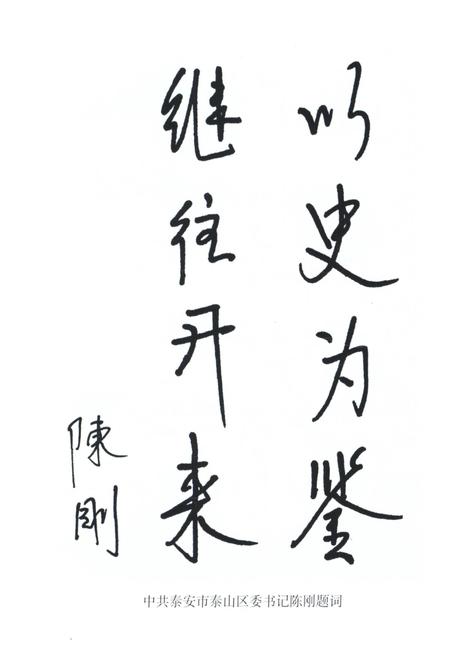 以史为鉴
继往开来
陳剛
中共泰安市泰山区委书记陈刚题词